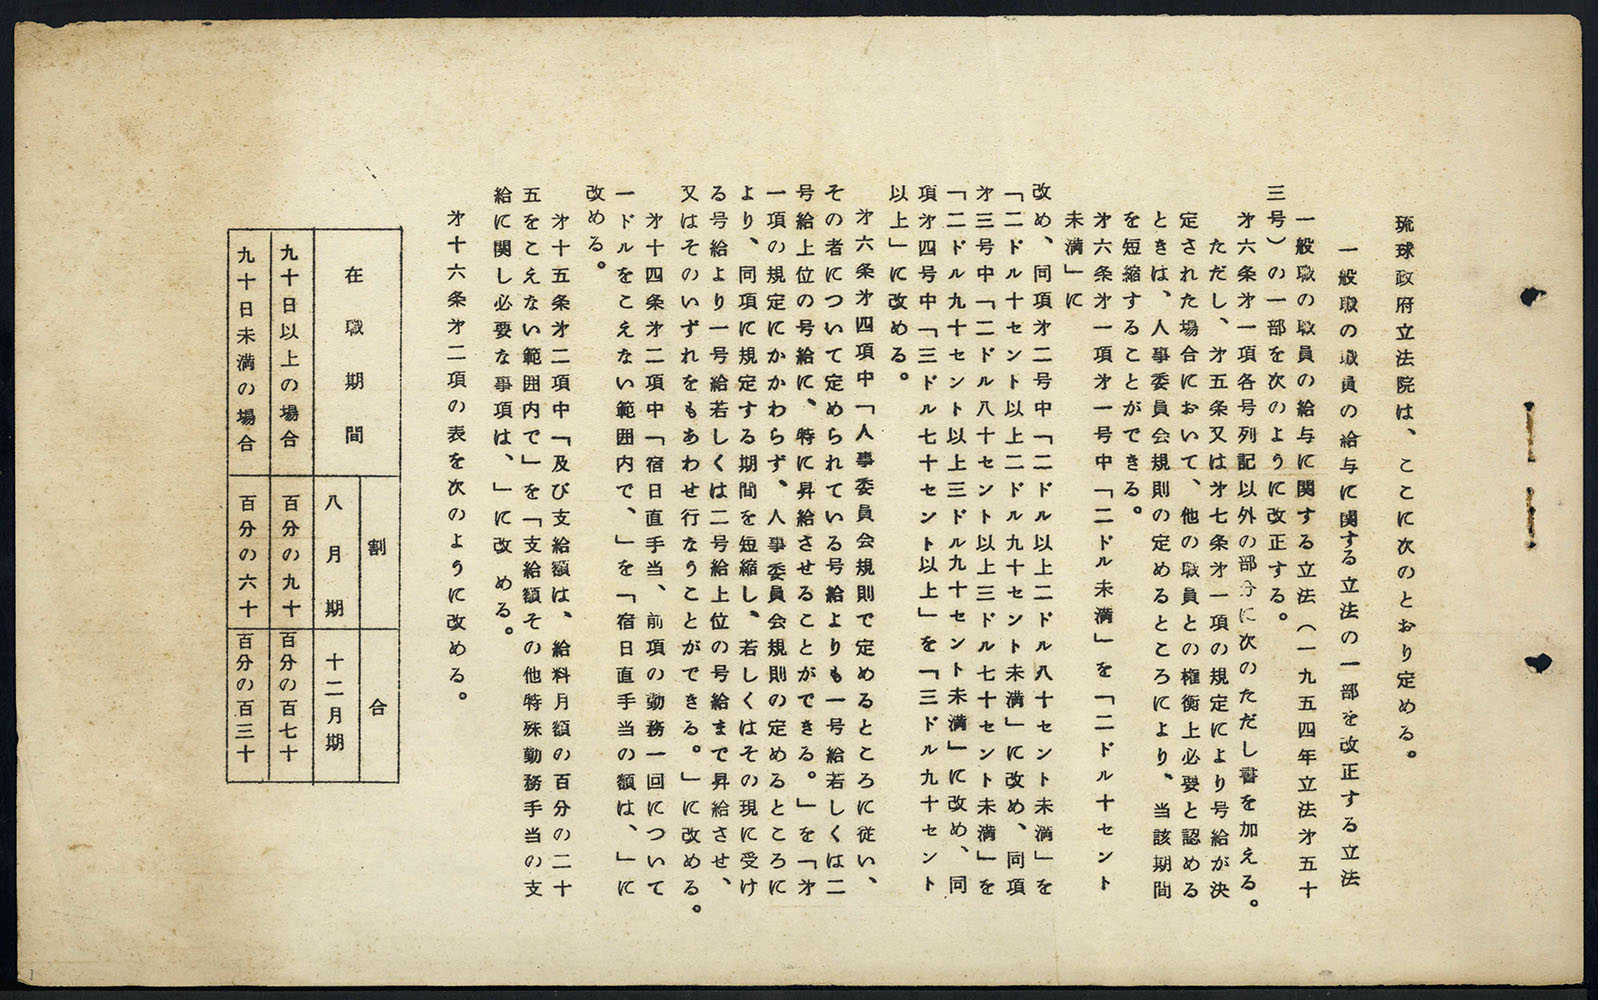 琉球政府立法院は、ここに次のとおり定める。
一般職の職員の給与に関する立法の一部を改正する立法
一般職の職員の給与に関する立法（一九五四年立法才五十
三号）の一部を次のように改正する。
才六条才一項各号列記以外の部分に次のただし書を加える。
ただし、才五条又は才七条才一項の規定により号給が決
定された場合において、他の職員との権衡上必要と認める
ときは、人事委員会規則の定めるところにより、当該期間
を短縮することができる。
才六条才一項才一号中「二ドル未満」を「二ドル十セント
未満」に
改め、同項才二号中「二ドル以上二ドル八十セント未満」を
「二ドル十セント以上二ドル九十セント未満」に改め、同項
才三号中「二ドル八十セント以上三ドル七十セント未満」を
「二ドル九十セント以上三ドル九十セント未満」に改め、同
項才四号中「三ドル七十セント以上」を「三ドル九十セント
以上」に改める。
才六条才四項中「人事委員会規則で定めるところに従い、
その者について定められている号給よりも一号給若しくは二
号給上位の号給に、特に昇給させることができる。」を「才
一項の規定にかかわらず、人事委員会規則の定めるところに
より、同項に規定する期間を短縮し、若しくはその現に受け
る号給より一号給若しくは二号給上位の号給まで昇給させ、
又はそのいずれをもあわせ行なうことができる。」に改める。
才十四条才二項中「宿日直手当、前項の勤務一回について
一ドルをこえない範囲内で、」を「宿日直手当の額は、」に
改める。
才十五条才二項中「及び支給額は、給料月額の百分の二十
五をこえない範囲内で」を「支給額その他特殊勤務手当の支
給に関し必要な事項は、」に改める。
才十六条才二項の表を次のように改める。
在職期間
割合
八月期
十二月期
九十日以上の場合
百分の九十
百分の百七十
九十日未満の場合
百分の六十
百分の百三十